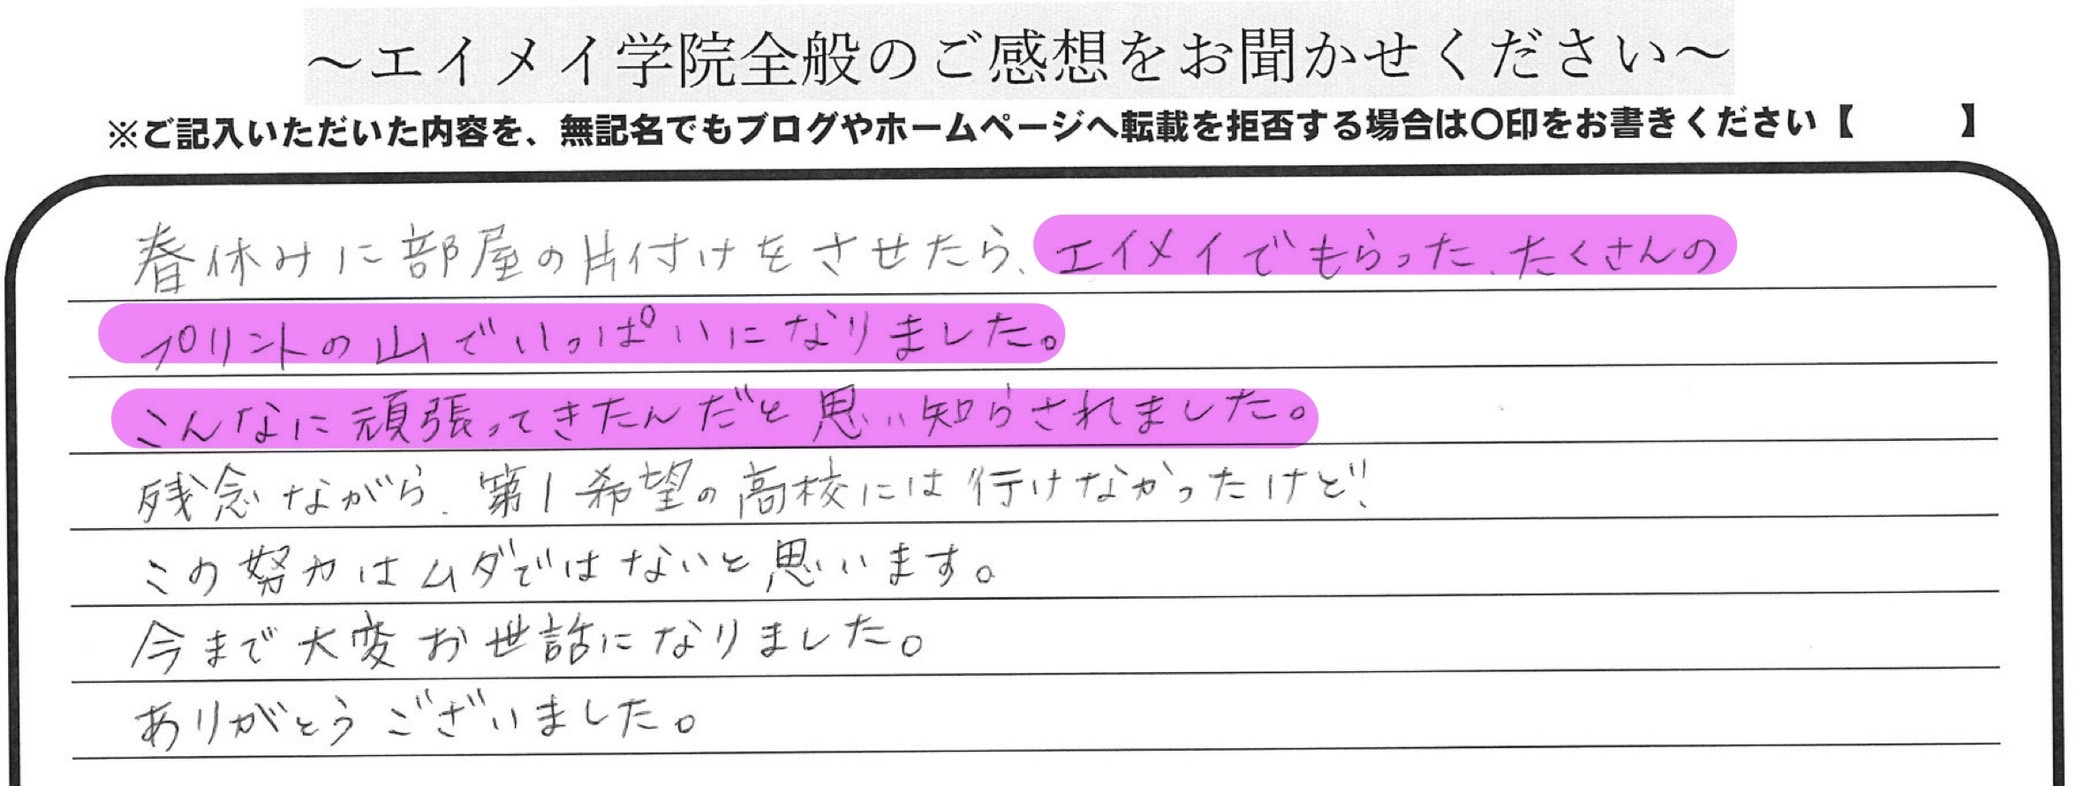 ～エイメイ学院全般のご感想をお聞かせください～
※ご記入いただいた内容を、無記名でもブログやホームページへ転載を拒否する場合は〇印をお書きください【　　　】
春休みに部屋の片付けをさせたら、エイメイでもらった、たくさんの
プリントの山でいっぱいになりました。
こんなに頑張ってきたんだと思い知らされました。
残念ながら、第1希望の高校には行けなかったけど!
この努力はムダではないと思います。
今まで大変お世話になりました。
ありがとうございました。